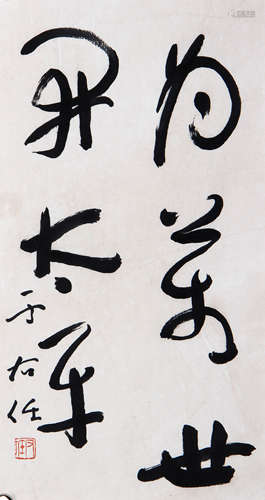 为万世
开太平
于右任